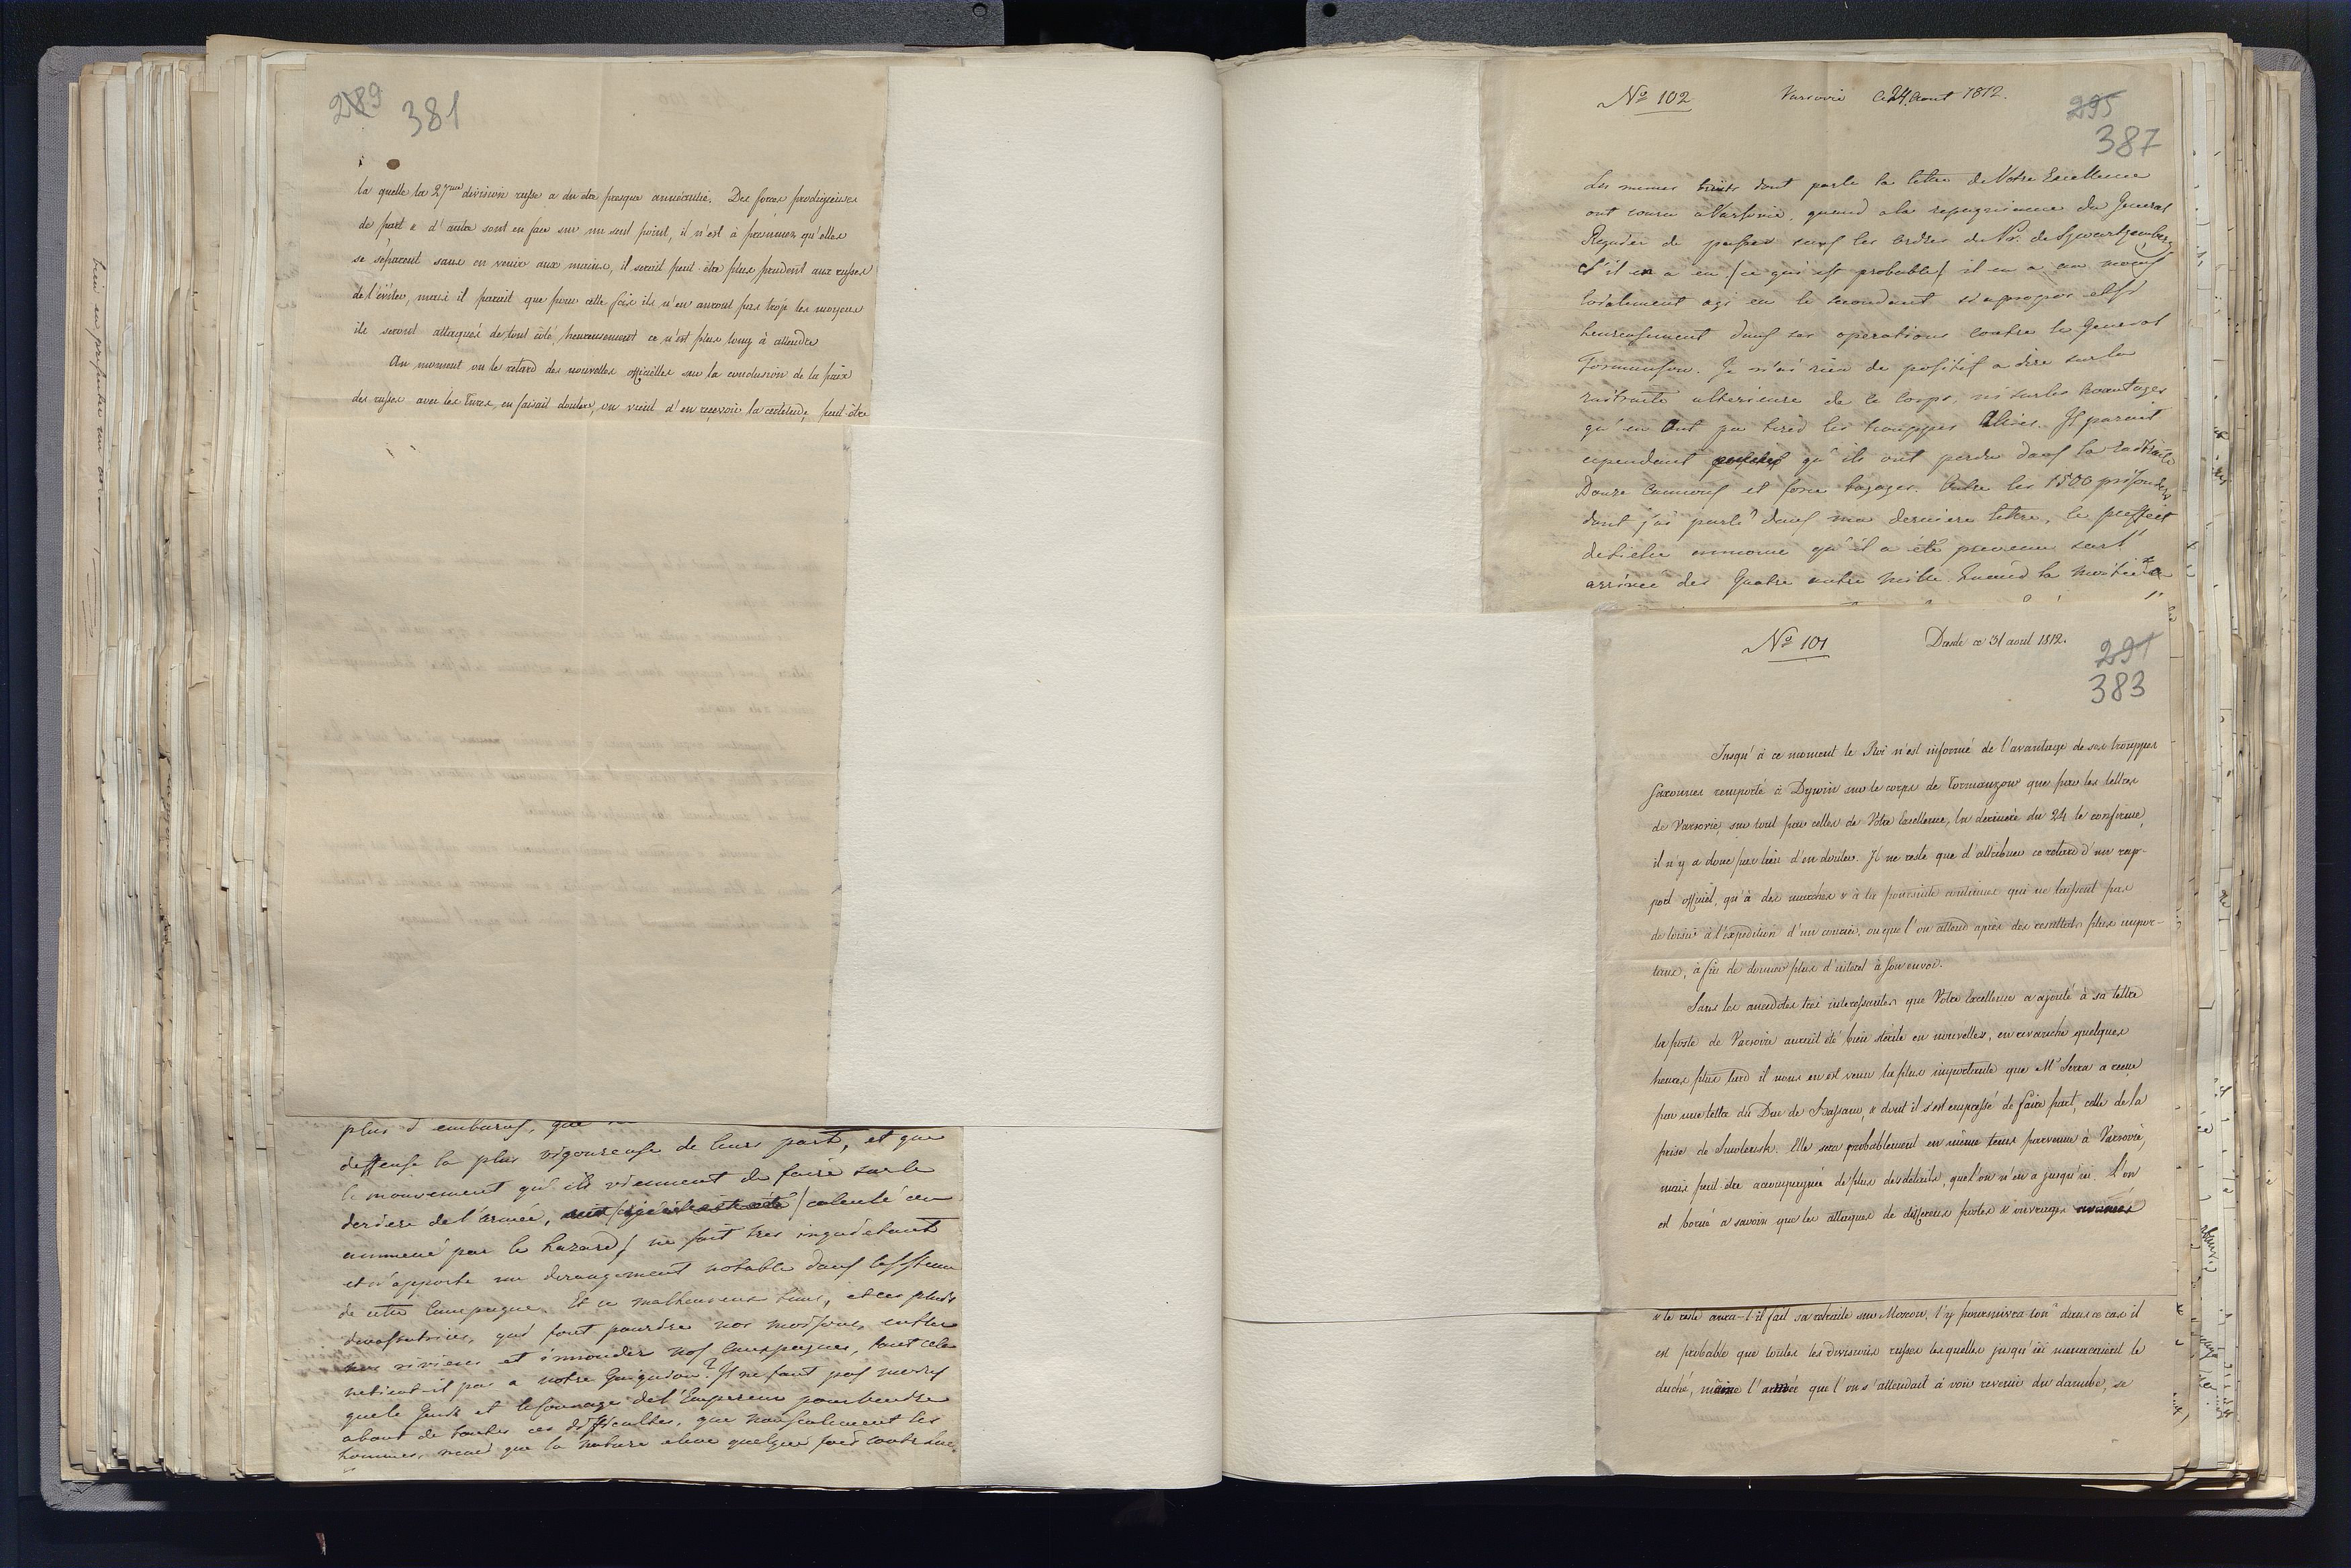 289 381
la quelle la 27me division russe a du etre presque aneantie. Des forces prodigieuses
de part & d'autre sont en face sur un seul point, il n'est à presumer qu'elles
se separent sans en venir aux mains, il serait peut-être plus prudent aux russes
de l'eviter, mais il parait que pour cette fois ils n'en auront pas trop les moyens
ils seront attaqués de tout côté, heureusement ce n'est plus long à attendre
Au moment ou le retard des nouvelles officielles sur la conclusion de la paix
des russes avec les Turcs, en faisait douter, on vient d'en recevoir la certitude, peut-être
plus d'embaras, que
deffense la plus vigoureuse de leurs part, et que
le mouvement qu'ils viennent de faire sur le
derriere de l'armée, calculé ou
ammené par le hazard/ ne soit tres inquietant
et n'apporte un derangement notable dans le sisteme
de cette Campagne. Et ce malheureux tems, et ces pluies
devastatrices, qui font pourire nos moissons, enfler
nos rivieres et innonder nos Campagnes, tout cela
netient-il pas a notre Guignon? Il ne faut pas moins
que le Genie et le Courage de l'Empereur pour vendre
about de toutes ces difficultes, que non seulement les
hommes, mais que la nature eleve quelque fois contre
No 102 Varsovie Ce 24. Aout 1812.
295
387
Les memes bruits dont parle la lettre de Votre Excellence
ont couru a Varsovie, quand a la repugnance du General
Regnier de passer sous les ordres du Pr. de Schwartzenberg
S'il en a eu /ce qui est probable/ il en a au moins
loialement agi en le secondant si apropos et si
heureusement dans ses operations contre le General
Tormansow. Je n'ai rien de positif a dire sur la
rastraite ulterieure de ce Corps, ni sur les avantages
qu'en Ont pu tirés les trouppes Aliées. Il parait
cependant qu'ils ont perdu dans la rastraite
Douze Cannons et force bagages. Outre les 1500 prisoniers
dont j'ai parlé dans ma derniere lettre, le preffect
de Sielce annonce qu'il a eté prevenu sur l'
arrivée des Quatre autre mille
No 101 Dresde ce 31 aout 1812.
291
383
Jusqu'à ce moment le Roi n'est informé de l'avantage de ses trouppes
saxonnes remporté à Dywin sur le corps de Tormanzow que par les lettres
de Varsovie, sur tout par celles de Votre Excellence, la derniere du 24 le confirme,
il n'y a donc pas lieu d'en douter. Il ne reste que d'attribuer ce retard d'un rap-
port officiel, qu'à des marches & à la poursuite continue qui ne laissent pas
de loisir à l'expedition d'un courier, ou que l'on attend après des resultats plus impor-
tans, à fin de donner plus d'interet à son envoi.
Sans les anecdotes tres interessantes que Votre Excellence a ajouté à sa lettre
la poste de Varsovie auroit été bien sterile en nouvelles, en revanche quelques
heures plus tard il nous en est venu la plus importante que Mr Serra a recue
par une lettre du Duc de Bassano, & dont il s'est empressé de faire part, celle de la
prise de Smolensk. Elle sera probablement en même tems parvenue à Varsovie,
mais peut-etre accompagnée de plus des details, que l'on n'en a jusqu'ici. L'on
est borné a savoir que les attaques de differens postes & ouvrages avancés
& le reste aura-t-il fait sa retraite sur Moscou, l'y poursuivra ton? dans ce cas il
est probable que toutes les divisions russes lesquelles jusqu'ici menacaient le
duché, même l'armée que l'on s'attendait à voir revenir du danube, se